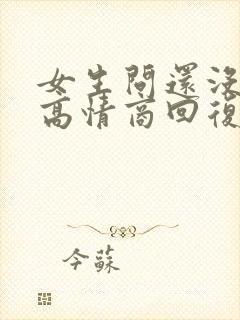 女生問還沒
高情商回復
今蘇